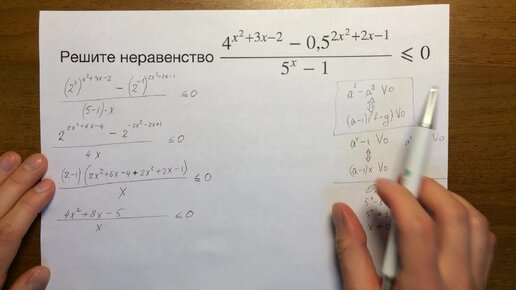 Решите неравенство (4^(x²+3x−2) − 0,5^(2x²+2x−1)) / (5^x − 1) ⩽ 0
((2²)^(x²+3x−2) − (2⁻¹)^(2x²+2x−1)) / ((5−1)·x) ≤ 0
(2^(2x²+6x−4) − 2^(−2x²−2x+1)) / (4x) ≤ 0
(2−1)(2x²+6x−4+2x²+2x−1) / x ≤ 0
(4x²+8x−5) / x ≤ 0
V0
(a−1)( −g) V0
V0
(a−1)x V0
V0